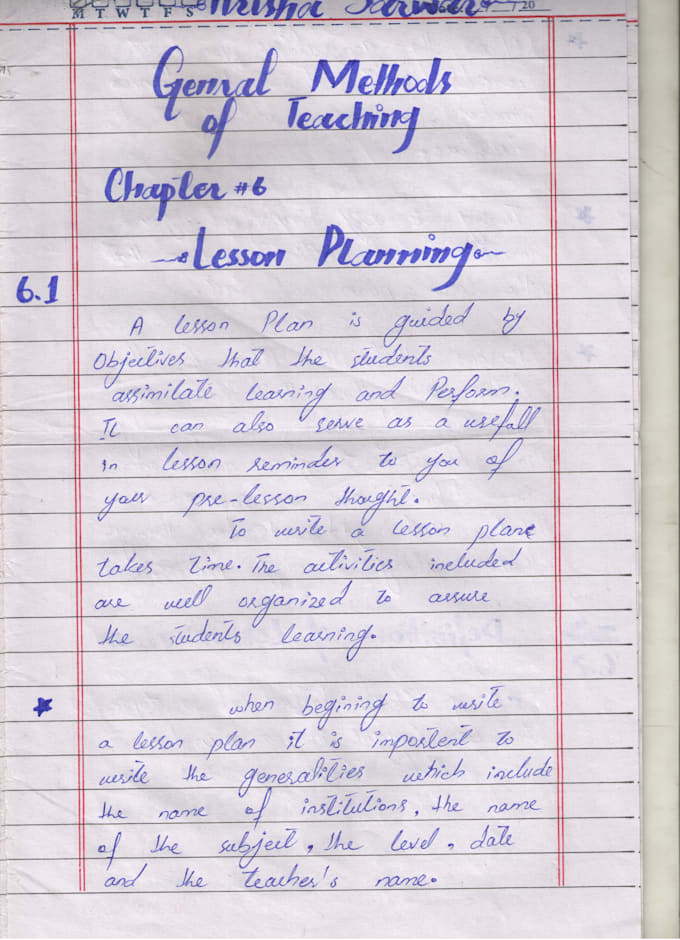 M T W T F S 20
Genral Methods
of Teaching
Chapter #6
Lesson Planning
6.1
A lesson Plan is guided by
Objectives that the students
assimilate learning and Perform.
It can also serve as a usefull
in lesson reminder to you of
your pre-lesson thought.
To write a lesson plane
takes time. The activities included
are well organized to assure
the students learning.
when begining to write
a lesson plan it is importent to
write the generalities which include
the name of institutions, the name
of the subject, the level, date
and the teacher's name.